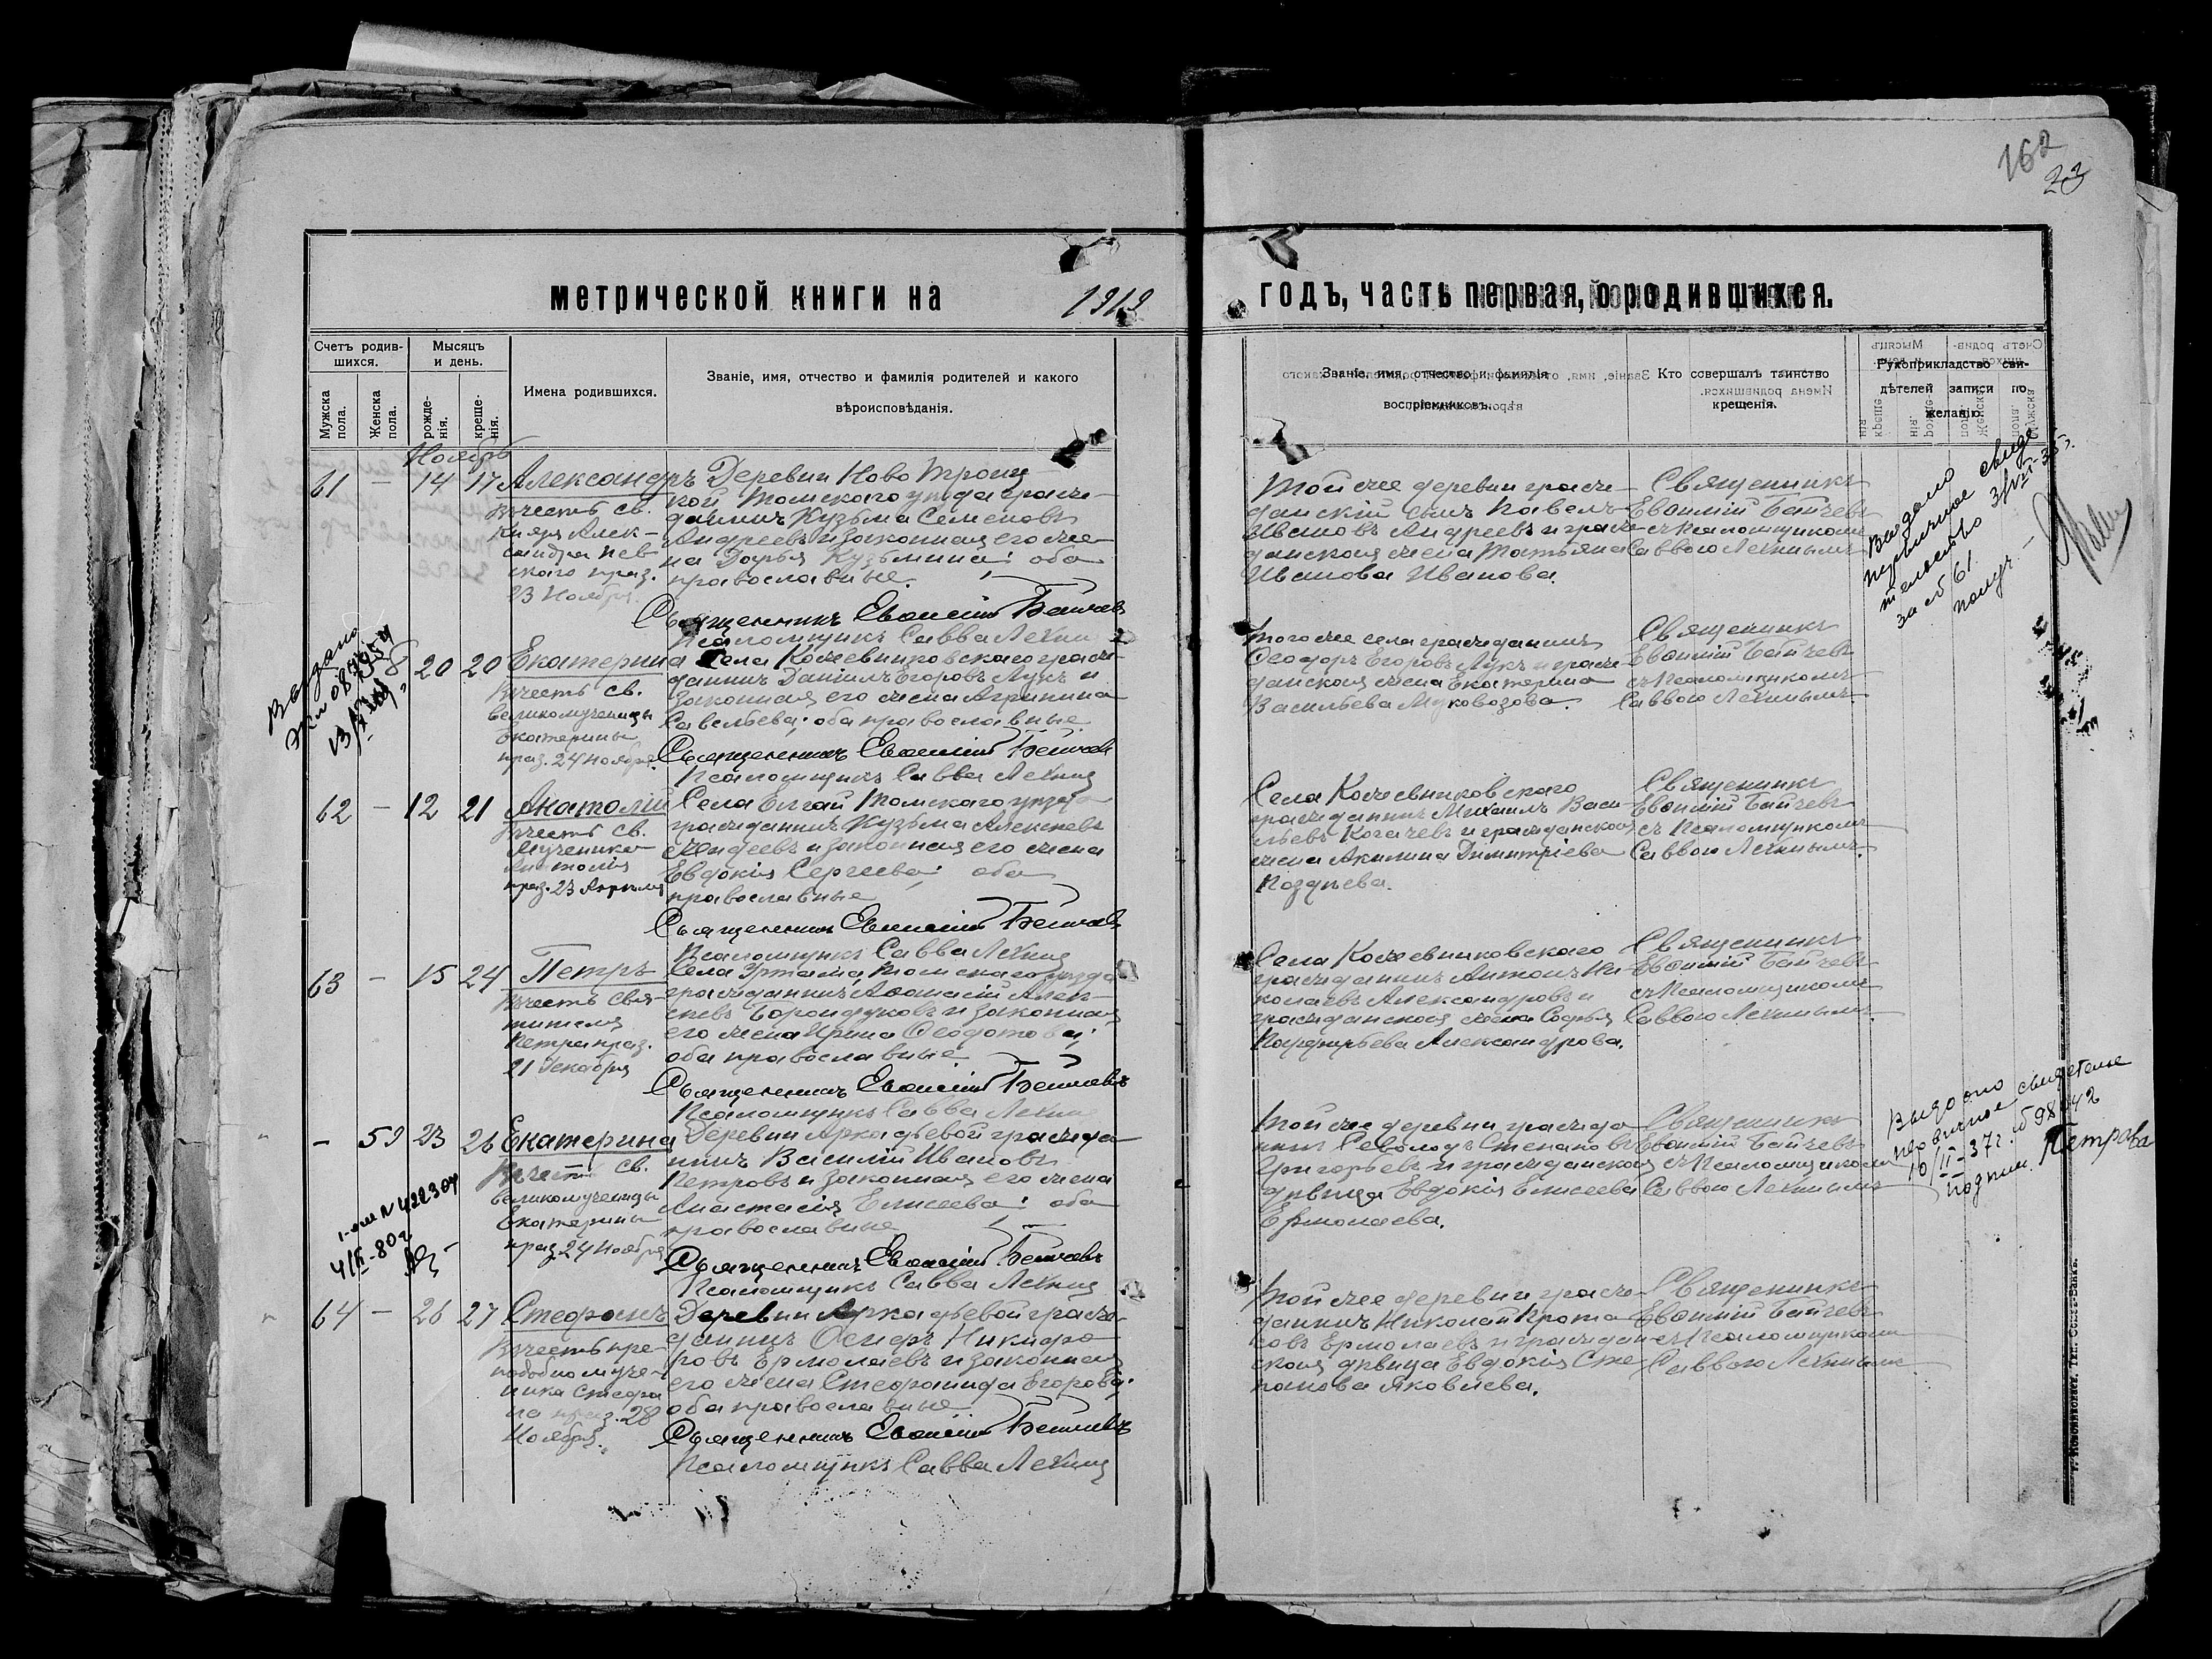 162
23
метрической книги на 1919 годъ, часть первая, о родившихся.
Счетъ родив-
шихся.
Мужска
пола.
Женска
пола.
Мѣсяцъ
и день.
рожде-
нія.
креще-
нія.
Имена родившихся.
Званіе, имя, отчество и фамилія родителей и какого
вѣроисповѣданія.
Званіе, имя, отчество и фамилія
воспріемниковъ.
Кто совершалъ таинство
крещенія.
Рукоприкладство сви-
дѣтелей записи по
желанію.
Ноябрь
61 – 14 17
Александръ
Въ честь св.
Князя Алек-
сандра Нев-
скаго праз.
23 Ноября.
Деревни Ново Троиц-
кой Томскаго уѣзда граж-
данинъ Кузьма Семеновъ
Андреевъ и законная его же-
на Дарья Кузьмина; оба
православные.
Священникъ Евѳимій Бѣйчевъ
Псаломщикъ Савва Лехниц
Той же деревни граж-
данскій сынъ Павелъ
Ивановъ Андреевъ и граж-
данская жена Татьяна
Иванова Иванова.
Священникъ
Евѳимій Бѣйчевъ
съ Псаломщикомъ
Саввою Лехницымъ.
Выдано
первичное свиде
тельство 3/VII-35г.
за № 61.
получ.
Выдано
58 20 20
Екатерина
Въ честь св.
великомученицы
Екатерины
праз. 24 Ноября.
Села Кожевниковскаго граж-
данинъ Даніилъ Егоровъ Лукъ и
законная его жена Агрипина
Савельева; оба православные
Священникъ Евѳимій Бѣйчевъ
Псаломщикъ Савва Лехниц
Того же села гражданинъ
Ѳеодоръ Егоровъ Лукъ и граж-
данская жена Екатерина
Васильева Муковозова.
Священникъ
Евѳимій Бѣйчевъ
съ Псаломщикомъ
Саввою Лехницымъ.
62 – 12 21
Анатолій
Въ честь св.
Мученика
Анатолія
праз. 23 Апрѣля
Села Елгай Томскаго уѣзда
гражданинъ Кузьма Алексѣевъ
и законная его жена
Евдокія Сергеева; оба
православные
Священникъ Евѳимій Бѣйчевъ
Псаломщикъ Савва Лехниц
Села Кожевниковскаго
гражданинъ Михаилъ Васи-
льевъ Когачевъ и гражданская
жена Акилина Димитріева
Позднѣева.
Священникъ
Евѳимій Бѣйчевъ
съ Псаломщикомъ
Саввою Лехницымъ.
63 – 15 24
Петръ
Въ честь Свя-
тителя
Петра праз.
21 Декабря
Села Уртама Томскаго уѣзда
гражданинъ Аѳанасій Алек-
сѣевъ Борондуковъ и законная
его жена Ирина Ѳеодотова;
оба православные
Священникъ Евѳимій Бѣйчевъ
Псаломщикъ Савва Лехниц
Села Кожевниковскаго
гражданинъ Антонъ Ни-
колаевъ Александровъ и
гражданская жена Софья
Парфирьева Александрова.
Священникъ
Евѳимій Бѣйчевъ
съ Псаломщикомъ
Саввою Лехницымъ.
– 59 23 26
Екатерина
Въ честь св.
великомученицы
Екатерины
праз. 24 Ноября
Деревни Аркадьевой гражда-
нинъ Василій Ивановъ
Петровъ и законная его жена
Анастасія Елисеева; оба
православные
Священникъ Евѳимій Бѣйчевъ
Псаломщикъ Савва Лехниц
Той же деревни гражда-
нинъ Севолодъ Степановъ
Григорьевъ и гражданская
дѣвица Евдокія Елисеева
Ермолаева.
Священникъ
Евѳимій Бѣйчевъ
съ Псаломщикомъ
Саввою Лехницымъ
Выдано
первичное свидетельс
10/II-37г.
подпись Петрова
64 – 26 27
Стефанъ
Въ честь пре-
подобномуче-
ника Стефа
на праз. 28
Ноября.
Деревни Аркадьевой граж-
данинъ Никифо-
ровъ Ермолаевъ и законная
его жена Стефанида Егорова;
оба православные
Священникъ Евѳимій Бѣйчевъ
Псаломщикъ Савва Лехниц
Той же деревни граж-
данинъ Николай Прота-
совъ Ермолаевъ и граждан-
ская дѣвица Евдокія Сте-
панова Яковлева.
Священникъ
Евѳимій Бѣйчевъ
съ Псаломщикомъ
Саввою Лехницымъ